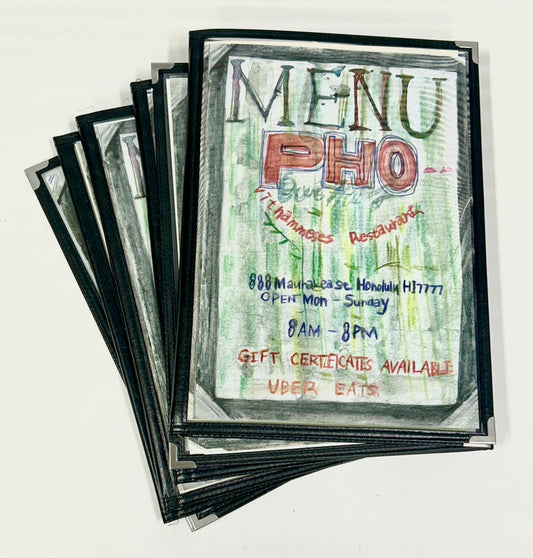 MENU
PHO
Vitnammeses Restaurant
888 Maunakea st Honolulu HI 7777
OPEN Mon - Sunday
8AM - 8PM
GIFT CERTIFICATES AVAILABLE
UBER EATS